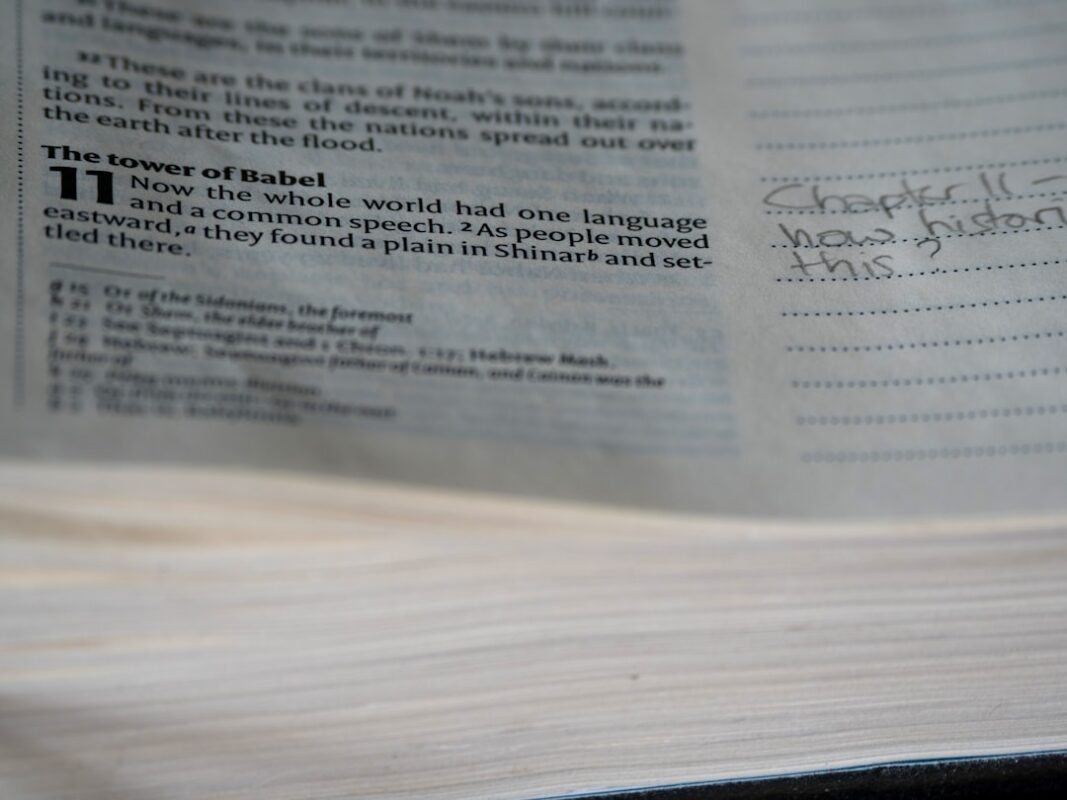 and languages, in their territories and nations.
32 These are the clans of Noah's sons, accord-
ing to their lines of descent, within their na-
tions. From these the nations spread out over
the earth after the flood.
The tower of Babel
11 Now the whole world had one language
and a common speech. 2 As people moved
eastward,a they found a plain in Shinarb and set-
tled there.
g 15 Or of the Sidonians, the foremost
h 21 Or Shem, the older brother of
Hebrew; Septuagint father of Cainan, and Cainan was the
father of
Chapter 11 –
how histori
this?